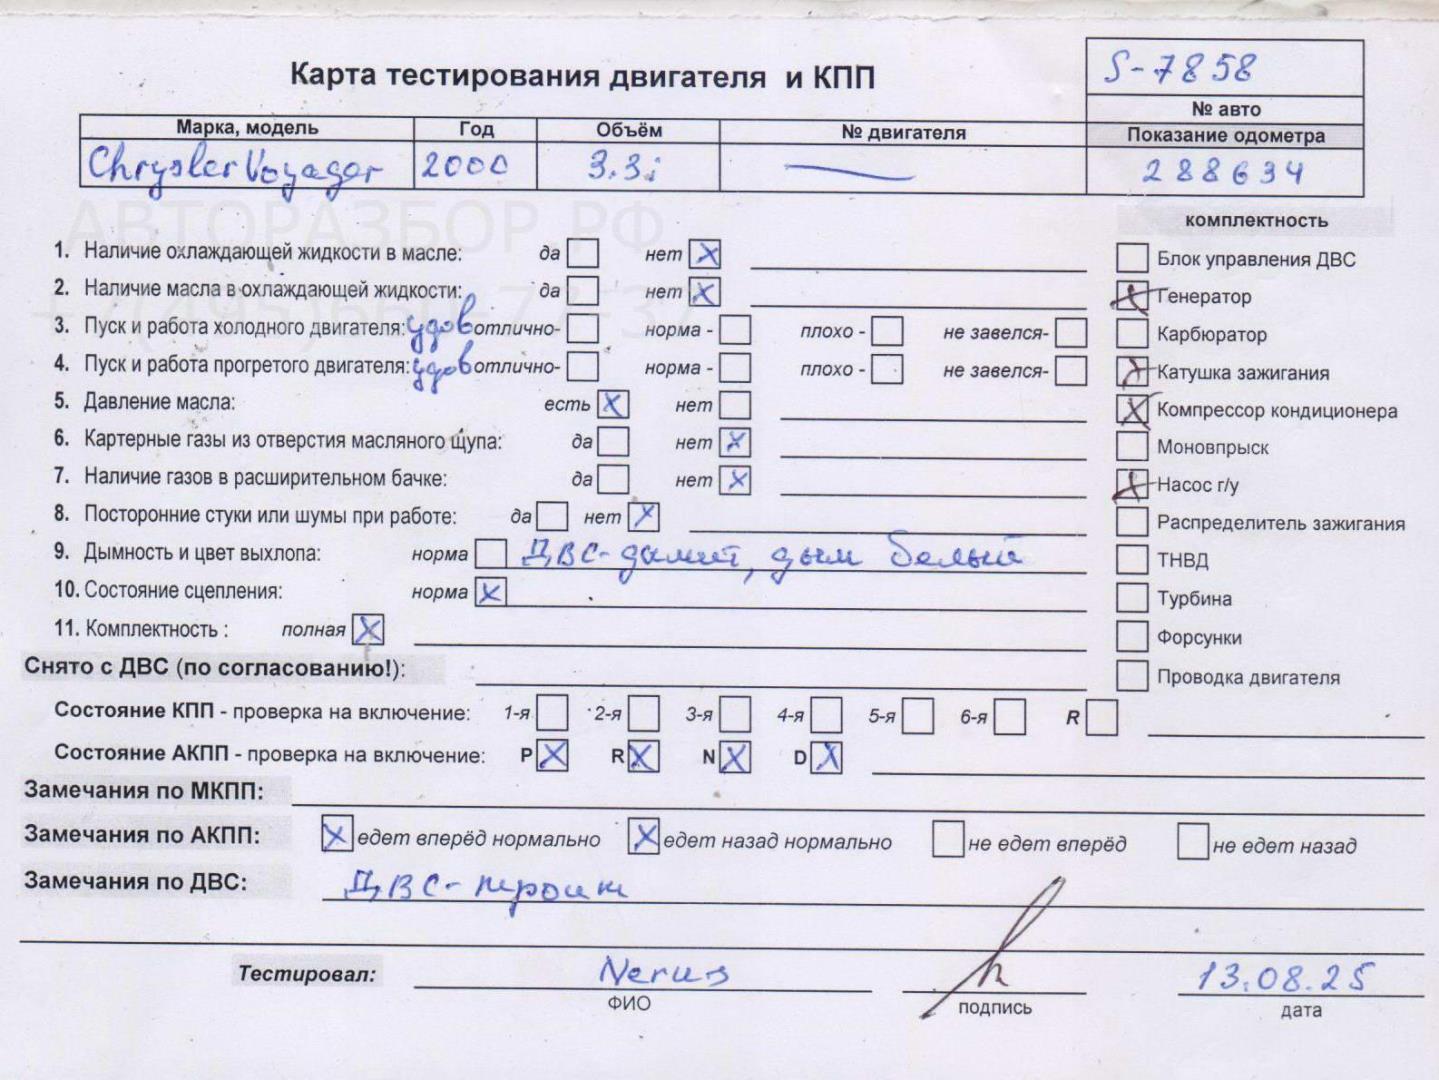 Карта тестирования двигателя и КПП
S-7858
№ авто
Марка, модель Год Объём № двигателя Показание одометра
Chrysler Voyager 2000 3.3i — 288634
АВТОРАЗБОР.РФ
комплектность
1. Наличие охлаждающей жидкости в масле: да нет X
Блок управления ДВС
2. Наличие масла в охлаждающей жидкости: да нет X
X Генератор
3. Пуск и работа холодного двигателя: удов отлично- норма - плохо - не завелся-
Карбюратор
4. Пуск и работа прогретого двигателя: удов отлично- норма - плохо - не завелся-
X Катушка зажигания
5. Давление масла: есть X нет
X Компрессор кондиционера
6. Картерные газы из отверстия масляного щупа: да нет X
Моновпрыск
7. Наличие газов в расширительном бачке: да нет X
X Насос г/у
8. Посторонние стуки или шумы при работе: да нет X
Распределитель зажигания
9. Дымность и цвет выхлопа: норма ДВС-дымит, дым белый
ТНВД
10. Состояние сцепления: норма X
Турбина
11. Комплектность : полная X
Форсунки
Снято с ДВС (по согласованию!):
Проводка двигателя
Состояние КПП - проверка на включение: 1-я 2-я 3-я 4-я 5-я 6-я R
Состояние АКПП - проверка на включение: P X R X N X D X
Замечания по МКПП:
Замечания по АКПП: X едет вперёд нормально X едет назад нормально не едет вперёд не едет назад
Замечания по ДВС: ДВС-троит
Тестировал: Nerus 13.08.25
ФИО подпись дата